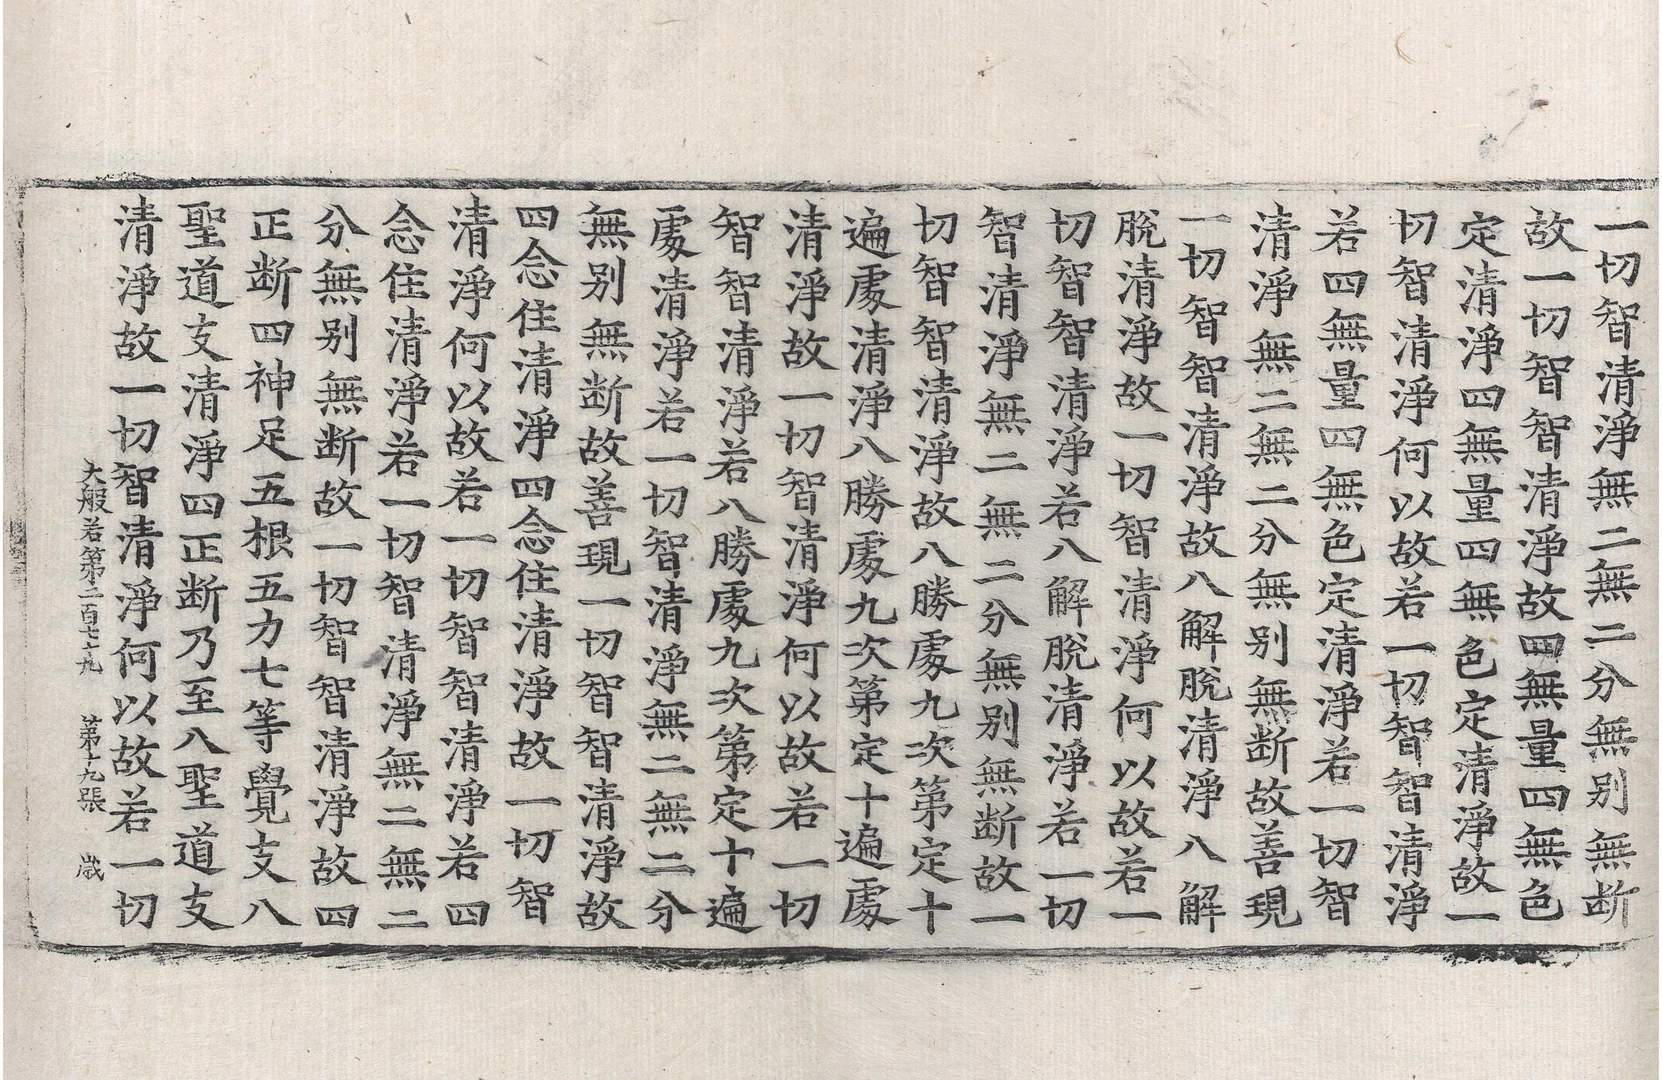 一切智清淨無二無二分無别無断
故一切智智清淨故四無量四無色
定清淨四無量四無色定清淨故一
切智清淨何以故若一切智智清淨
若四無量四無色定清淨若一切智
清淨無二無二分無别無断故善現
一切智智清淨故八解脫清淨八解
脫清淨故一切智清淨何以故若一
切智智清淨若八解脫清淨若一切
智清淨無二無二分無别無断故一
切智智清淨故八勝處九次第定十
遍處清淨八勝處九次第定十遍處
清淨故一切智清淨何以故若一切
智智清淨若八勝處九次第定十遍
處清淨若一切智清淨無二無二分
無别無断故善現一切智智清淨故
四念住清淨四念住清淨故一切智
清淨何以故若一切智智清淨若四
念住清淨若一切智清淨無二無二
分無别無断故一切智智清淨故四
正断四神足五根五力七等覺支八
聖道支清淨四正断乃至八聖道支
清淨故一切智清淨何以故若一切
大般若第二百七十九 第十九張 歲